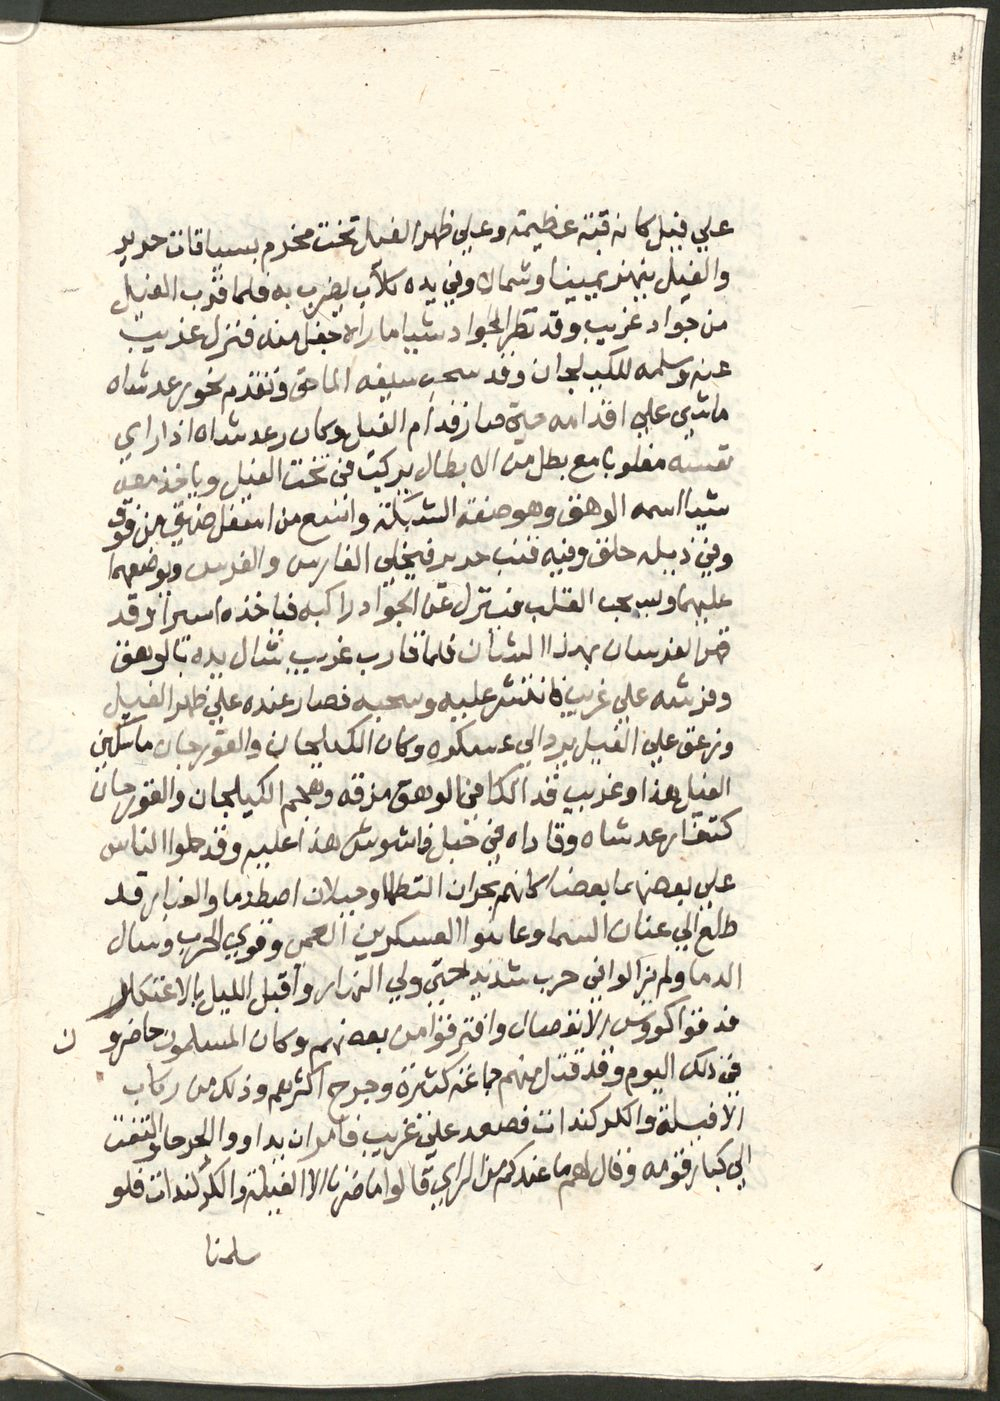 علي فيل كانه قبة عظيمة وعلي ظهر الفيل تخت مخدم بسياقات حديد
والفيل ينهز يمينا وشمالا وفي يده كلاب يضرب به فلما قرب الفيل
من جواد غريب وقد نظر الجواد شيا ما راه جفل منه فنزل غريب
عنه وسلمه للكيلجان وقد سحب سيفه الماحق وتقدم نحو رعد شاه
ماشي علي اقدامه حتي صار قدام الفيل وكان رعد شاه اذا راي
نفسه مغلوبا مع بطل من الابطال يركب في تخت الفيل وياخذ معه
شيا اسمه الوهق وهو صفة الشبكة واسع من اسفل ضيق من فوق
وفي ذيله حلق وفيه قنب حرير فيخلي الفارس والفرس ويوضعها
عليهما ويسحب القنب فينزل عن الجواد راكبه فياخذه اسيرا وقد
قهر الفرسان بهذا الشان فلما قارب غريب شال يده بالوهق
وفرشه علي غريب فانتشر عليه وسحبه فصار عنده علي ظهر الفيل
وزعق علي الفيل يرد الي عسكره وكان الكيلجان والقورجان ماسكين
الفيل هذا وغريب قد اتكا في الوهق مزقه وهجم الكيلجان والقورجان
كتفا رعد شاه وقاداه في حبل فاشوش هذا عليه وقد حملوا الناس
علي بعضهما بعضا كانهم بحران التطما وجبلان اصطدما والغبار قد
طلع الي عنان السما وعاينوا العسكرين العمي وقوي الحرب وسال
الدما ولم يزالوا في حرب شديد حتي ولي النهار واقبل الليل بالاعتكار
فدقوا كووس الانفصال وافترقوا من بعضهم وكان المسلمون حاضرون
في ذلك اليوم وقد قتل منهم جماعة كثيرة وجرح اكثرهم وذلك من ركاب
الافيلة والكركندات فصعد علي غريب فامر ان يداووا الجرحا والتفت
الي كبار قومه وقال لهم ما عندكم من الراي قالوا ما ضرنا الا الفيلة والكركندات فلو
سلمنا